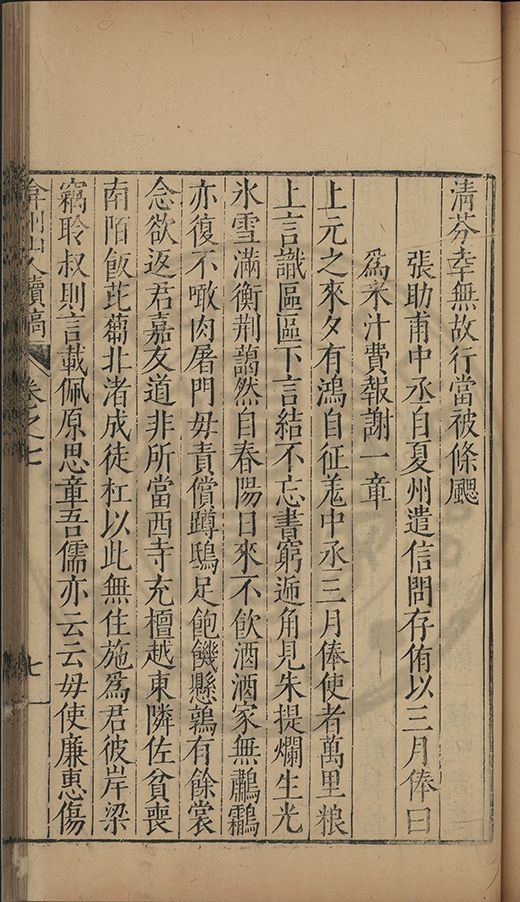 清芬幸無故行當被條颸
張助甫中丞自夏州遣信問存侑以三月俸曰
爲米汁費報謝一章
上元之來夕有鴻自征羗中丞三月俸使者萬里粮
上言識區區下言結不忘書窮迊角見朱提爛生光
氷雪滿衡荆藹然自春陽日來不飲酒酒家無鷫鸘
亦復不噉肉屠門毋責償蹲鴟足飽饑懸鶉有餘裳
念欲返君嘉友道非所當西寺充檀越東隣佐貧喪
南陌飯茈蘮北渚成徒杠以此無住施爲君彼岸梁
竊聆叔則言載佩原思章吾儒亦云云毋使廉惠傷
弇州山人續稿
卷之七
七